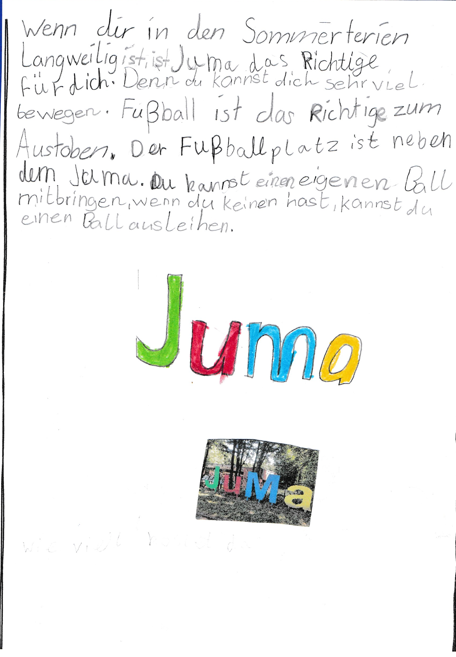 Wenn dir in den Sommerferien
Langweilig ist, ist Juma das Richtige
für dich. Denn du kannst dich sehr viel
bewegen. Fußball ist das Richtige zum
Austoben. Der Fußballplatz ist neben
dem Juma. Du kannst einen eigenen Ball
mitbringen, wenn du keinen hast, kannst du
einen Ball ausleihen.
Juma
JUMa